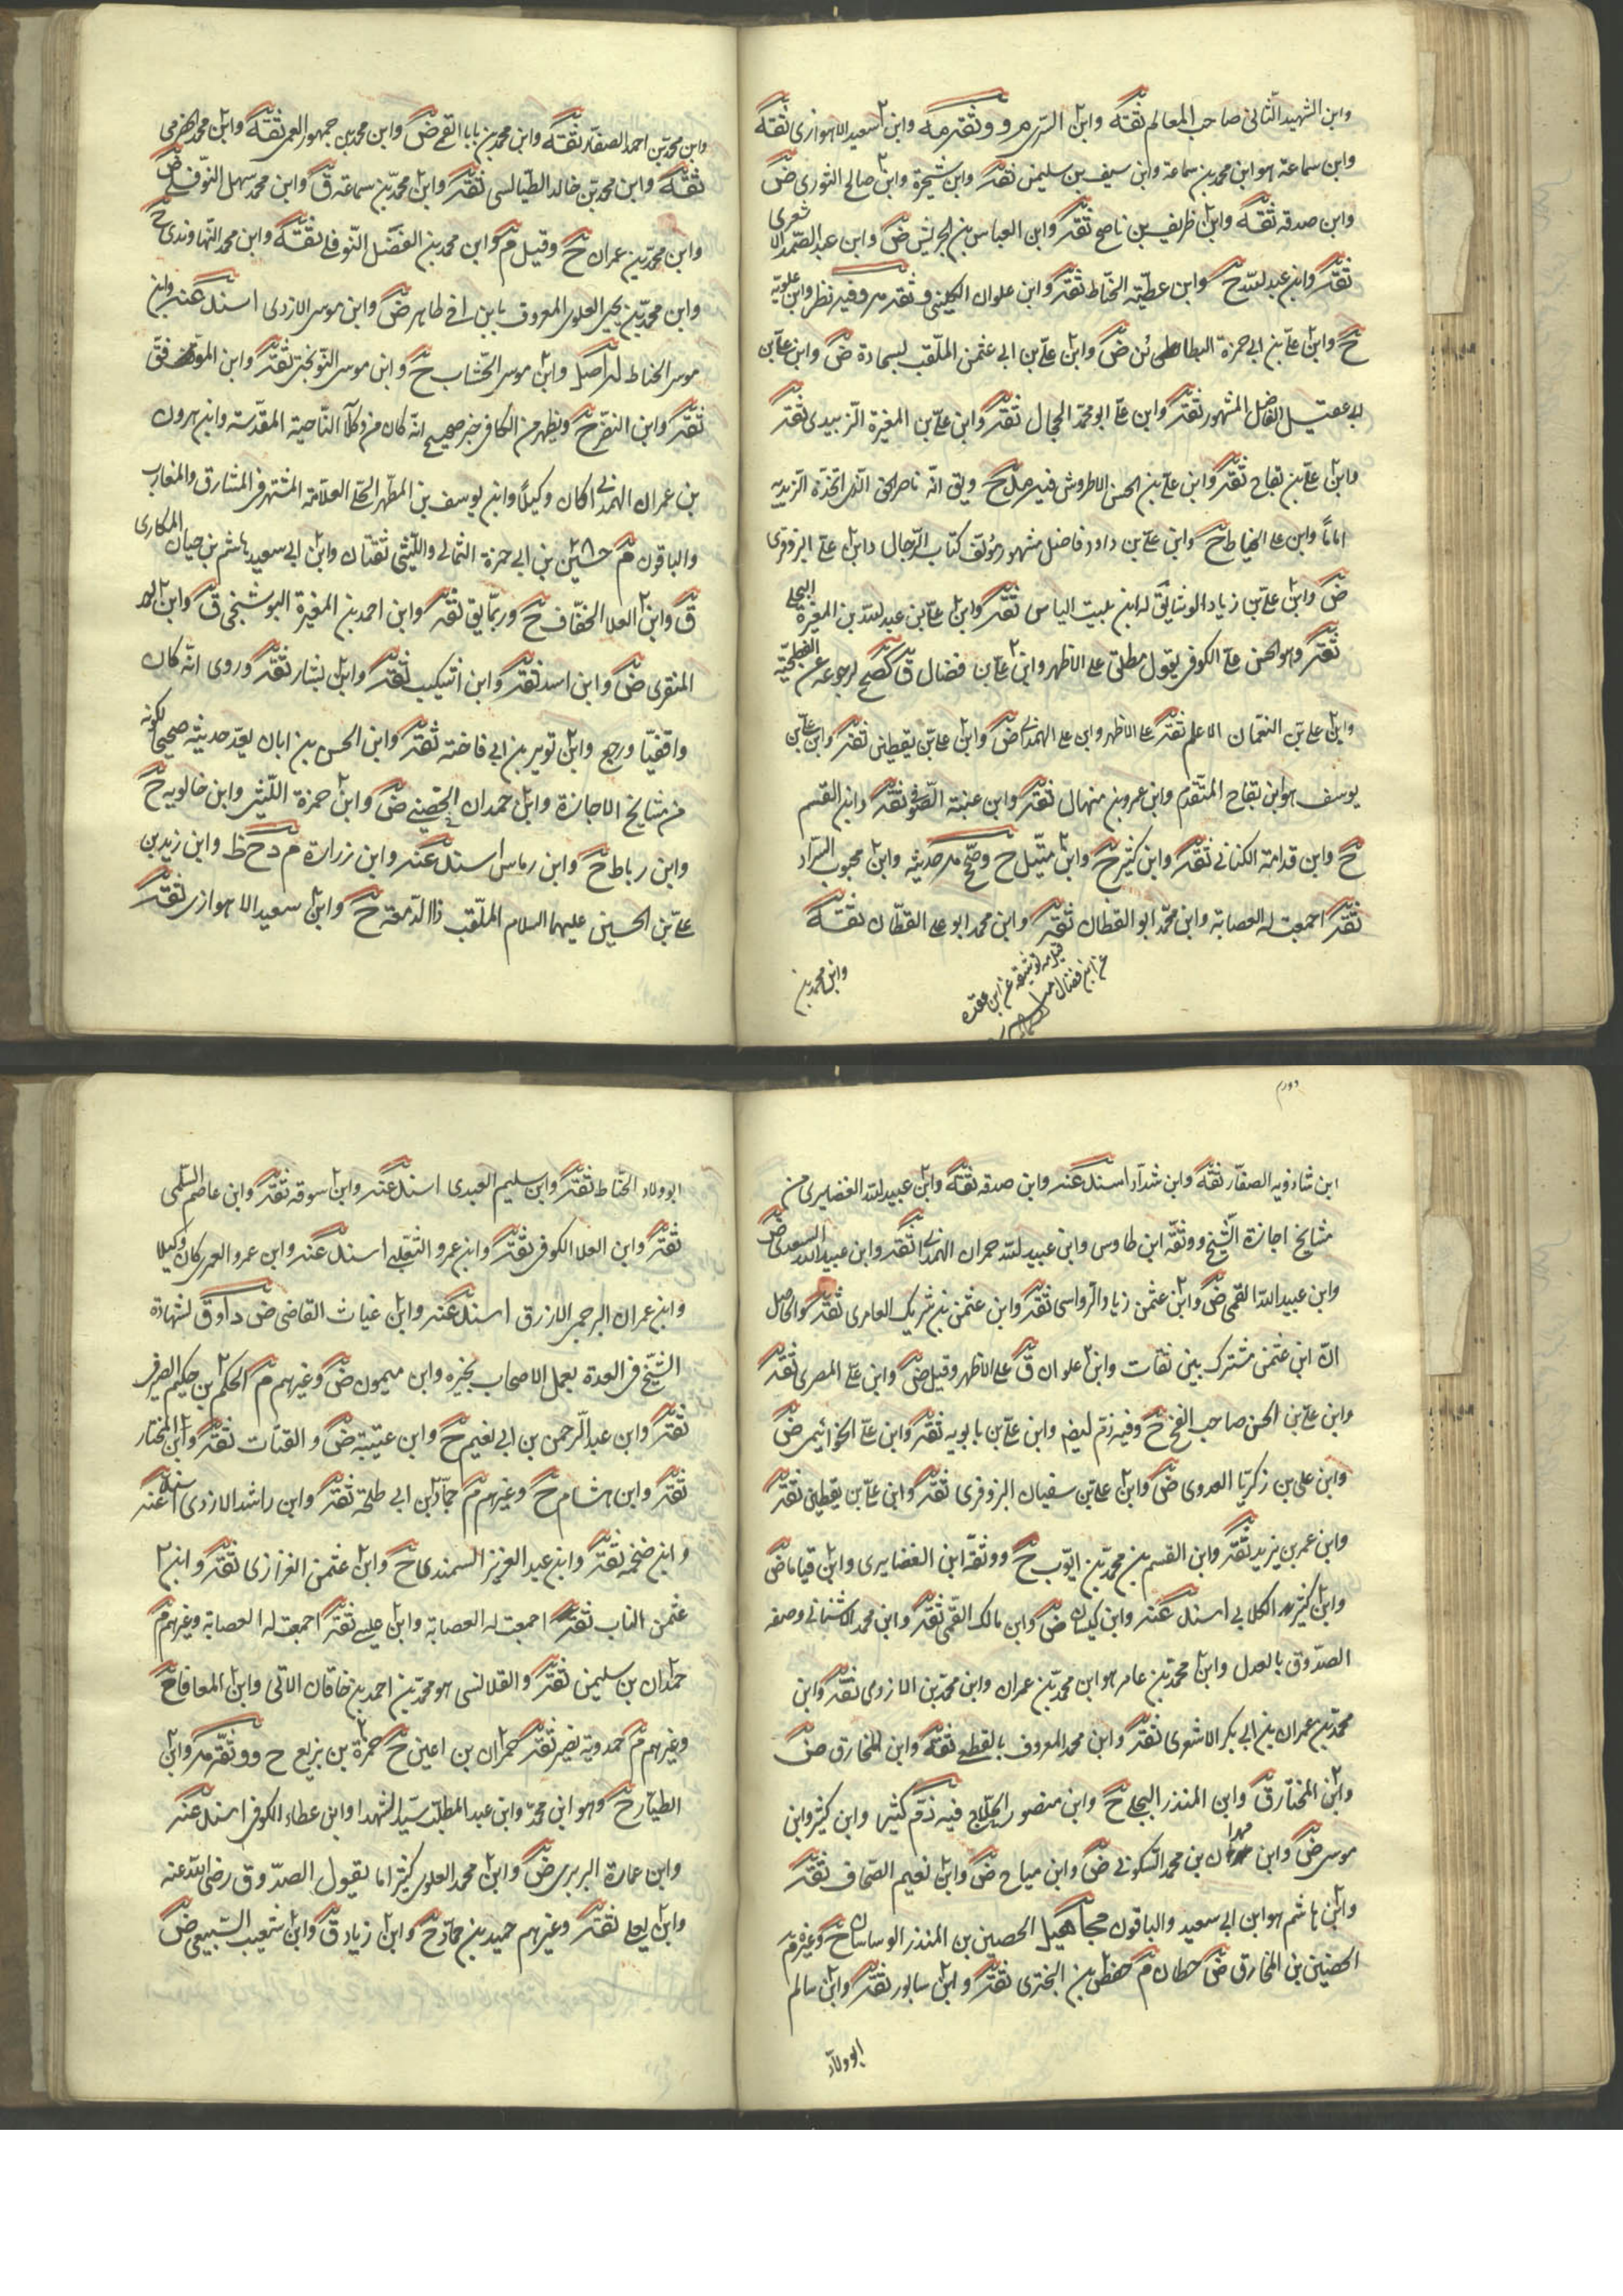 وابن الشهيد الثاني صاحب المعالم ثقة وابن السري م ووثقه مه وابن سعيد الاهوازي ثقة
وابن سماعة هو ابن محمد بن سماعة وابن سيف بن سليمن ثقة وابن شجرة وابن صالح الثوري ض
وابن صدقه ثقة وابن ظريف بن ناصح ثقة وابن العباس بن الجريش ض وابن عبد الصمد الاشعري
ثقة وابن عبد الله ح وابن عطية الحناط ثقة وابن علوان الكليني ثقة وفيه نظر وابن علوية
ح وابن علي بن ابي حمزة البطائني ض وابن علي بن ابي عثمن الملقب بسجادة ض وابن علي بن
ابي عقيل الفاضل المشهور ثقة وابن علي ابو محمد الحجال ثقة وابن علي بن المغيرة الزبيدي ثقة
وابن علي بن بقاح ثقة وابن علي بن الحسن الاطروش فيه مدح ويق انه ناصر الحق الذي اتخذه الزيدية
اماما وابن علي الخياط ح وابن علي بن داود فاضل مشهور مؤلف كتاب الرجال وابن علي البزوفري
ض وابن علي بن زياد الوشا يق له ابن بنت الياس ثقة وابن علي بن عبد الله بن المغيرة البجلي
ثقة وهو الحسن علي الكوفي يقول مطلق على الاظهر وابن علي بن فضال ق كصح لرجوعه عن الفطحية
وابن علي بن النعمان الاعلم ثقة على الاظهر وابن علي الهمداني ض وابن علي بن يقطين ثقة وابن علي بن
يوسف هو ابن بقاح المتقدم وابن عمرو بن منهال ثقة وابن عنبة الصوفي ثقة وابن القسم
ح وابن قدامة الكناني ثقة وابن كثير ح وابن متيل ح وصحح حديثه وابن محبوب السراد
ثقة اجمعت له العصابة وابن محمد ابو القطان ثقة وابن محمد ابو علي القطان ثقة
قيل مه توثيقه عن ابن عقده
عن ابن فضال
وابن محمد بن
وابن محمد بن احمد الصفار ثقة وابن محمد بن بابا القمي ض وابن محمد بن جمهور العمي ثقة وابن محمد الحضرمي
ثقة وابن محمد بن خالد الطيالسي ثقة وابن محمد بن سماعة ق وابن محمد سهل النوفلي ض
وابن محمد بن عمران ح وقيل م وابن محمد بن الفضل النوفلي ثقة وابن محمد النهاوندي ح
وابن محمد بن يحيى العلوي المعروف بابن اخي طاهر ض وابن موسى الازدي اسند عنه وابن
موسى الحناط له اصل وابن موسى الخشاب ح وابن موسى النوبختي ثقة وابن الموفق
ثقة وابن النضر ح ويظهر من الكافي خبر صحيح انه كان من وكلاء الناحية المقدسة وابن هرون
بن عمران الهمداني كان وكيلا وابن يوسف بن المطهر الحلي العلامة المشتهر في المشارق والمغارب
والباقون م حسين بن ابي حمزة الثمالي والليثي ثقتان وابن ابي سعيد هاشم بن حيان المكاري
ق وابن ابي العلا الخفاف ح وربما يق ثقة وابن احمد بن المغيرة البوشنجي ق وابن
المنقري ض وابن اسد ثقة وابن اشكيب ثقة وابن بشار ثقة وروى انه كان
واقفيا ورجع وابن ثوير بن ابي فاخته ثقة وابن الحسن بن ابان يعد حديثه صحيحا لكونه
من مشايخ الاجازة وابن حمدان الحضيني ض وابن حمزة الليثي وابن خالويه ح
وابن رباط ح وابن رماس اسند عنه وابن زرارة م دح ظ وابن زيد بن
علي بن الحسين عليهما السلام الملقب ذا الدمعة ح وابن سعيد الاهوازي ثقة
ابن شاذويه الصفار ثقة وابن شداد اسند عنه وابن صدقه ثقة وابن عبيد الله الغضايري من
مشايخ اجازة الشيخ ووثقه ابن طاوس وابن عبيد الله حمران الهمداني ثقة وابن عبيد الله السعدي ض
وابن عبيد الله القمي ض وابن عثمن زياد الرواسي ثقة وابن عثمن بن شريك العامري ثقة والحاصل
ان ابن عثمن مشترك بين ثقات وابن علوان ق على الاظهر وقيل ض وابن علي المصري ثقة
وابن علي بن الحسن صاحب الفخ ح وفيه ذم ايضا وابن علي بن بابويه ثقة وابن علي الخواتيمي ض
وابن علي بن زكريا العدوي ض وابن علي بن سفيان البزوفري ثقة وابن علي بن يقطين ثقة
وابن عمر بن يزيد ثقة وابن القسم بن محمد بن ايوب ح ووثقه ابن الغضايري وابن قياما ض
وابن كثير الكلابي اسند عنه وابن كيسان ض وابن مالك القمي ثقة وابن محمد الاشناني وصفه
الصدوق بالعدل وابن محمد بن عامر هو ابن محمد بن عمران وابن محمد بن الازدي ثقة وابن
محمد بن عمران بن ابي بكر الاشعري ثقة وابن محمد المعروف بالقطعي ثقة وابن المخارق ض
وابن المختار ق وابن المنذر البجلي ح وابن منصور الحلاج فيه ذم كثير وابن كثير وابن
موسى ض وابن مهران بن محمد السكوني ض وابن مياح ض وابن نعيم الصحاف ثقة
وابن هاشم هو ابن ابي سعيد والباقون مجاهيل الحصين بن المنذر ابو ساسان ح وغيره م
الحضين بن المخارق ض حطان م حفص بن البختري ثقة وابن سابور ثقة وابن سالم
ابو ولاد
ابو ولاد الحناط ثقة وابن سليم العبدي اسند عنه وابن سوقه ثقة وابن عاصم السلمي
ثقة وابن العلا الكوفي ثقة وابن عمرو الثعلبي اسند عنه وابن عمرو العمري كان وكيلا
وابن عمران البرجمي الازرق اسند عنه وابن غياث القاضي ض د او ق لشهادة
الشيخ في العدة بعمل الاصحاب بخبره وابن ميمون ض وغيرهم م الحكم بن حكيم الصيرفي
ثقة وابن عبد الرحمن بن ابي نعيم ح وابن عتيبة ض والقتات ثقة وابن المختار
ثقة وابن هشام ح وغيرهم م حماد بن ابي طلحة ثقة وابن راشد الازدي اسند عنه
وابن ضخمه ثقة وابن عبد العزيز السمندي ح وابن عثمن الفزاري ثقة وابن
عثمن الناب ثقة اجمعت له العصابة وابن عيسى ثقة اجمعت له العصابة وغيرهم م
حمدان بن سليمن ثقة والقلانسي هو محمد بن احمد بن خاقان الاتي وابن المعافا ح
وغيرهم م حمدويه نصير ثقة حمران بن اعين ح حمزة بن بزيع ح ووثقه مه وابن
الطيار ح وهو ابن محمد وابن عبد المطلب سيد الشهدا وابن عطاء الكوفي اسند عنه
وابن عمارة البربري ض وابن محمد العلوي كثيرا ما يقول الصدوق رضي الله عنه
وابن يعلى ثقة وغيرهم حميد بن حماد ح وابن زياد ق وابن شعيب السبيعي ض